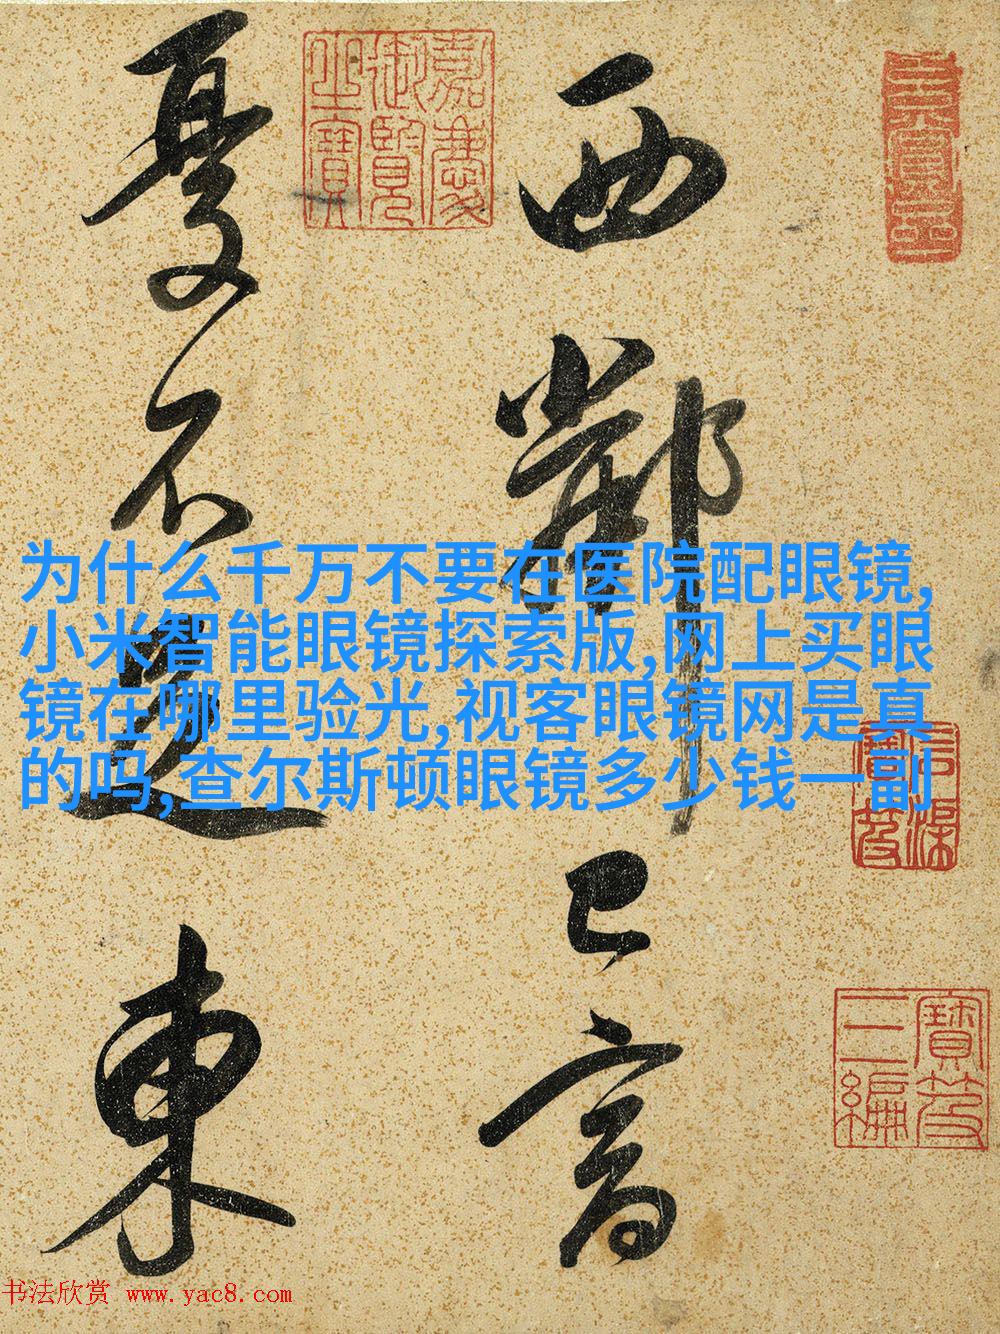 西鄰已富
憂不足東
嘉慶御覽之寶
石渠寶笈
寶笈三編
为什么千万不要在医院配眼镜,
小米智能眼镜探索版,网上买眼
镜在哪里验光,视客眼镜网是真
的吗,查尔斯顿眼镜多少钱一副
书法欣赏 www.yac8.com